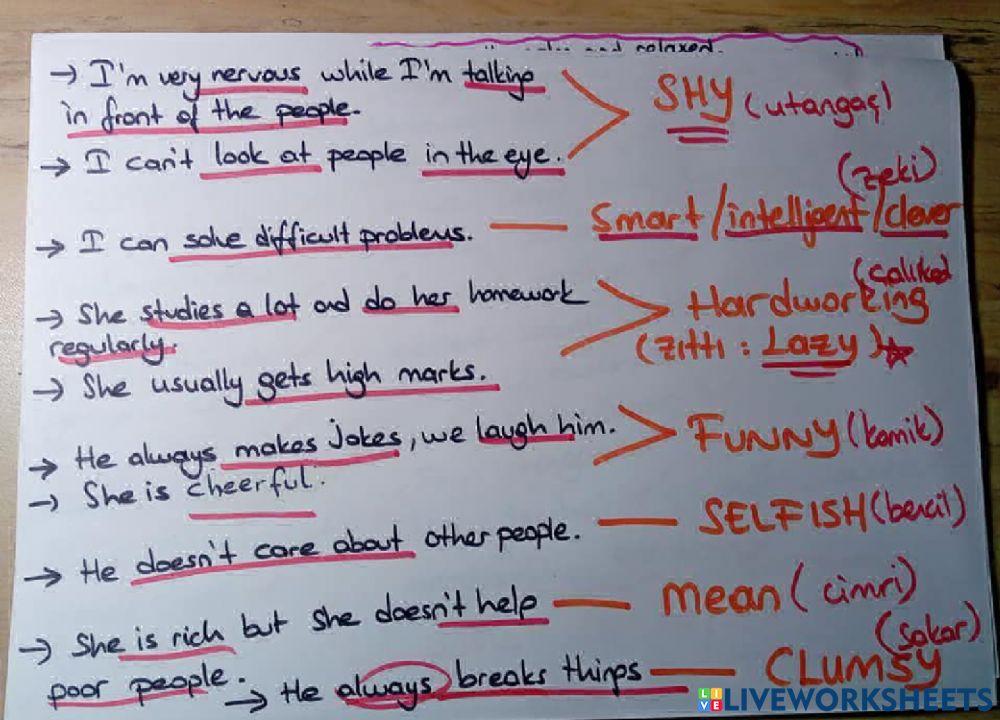 and relaxed.
→ I'm very nervous while I'm talking
in front of the people.
SHY (utangaç)
→ I can't look at people in the eye.
(zeki)
→ I can solve difficult problems.
Smart / intelligent / clever
(çalışkan)
→ She studies a lot and do her homework
regularly.
Hardworking
(zıttı : Lazy)
→ She usually gets high marks.
→ He always makes jokes, we laugh him.
FUNNY (komik)
→ She is cheerful.
→ He doesn't care about other people.
SELFISH (bencil)
→ She is rich but she doesn't help
poor people.
mean (cimri)
(sakar)
→ He always breaks things
CLUMSY
LIVEWORKSHEETS